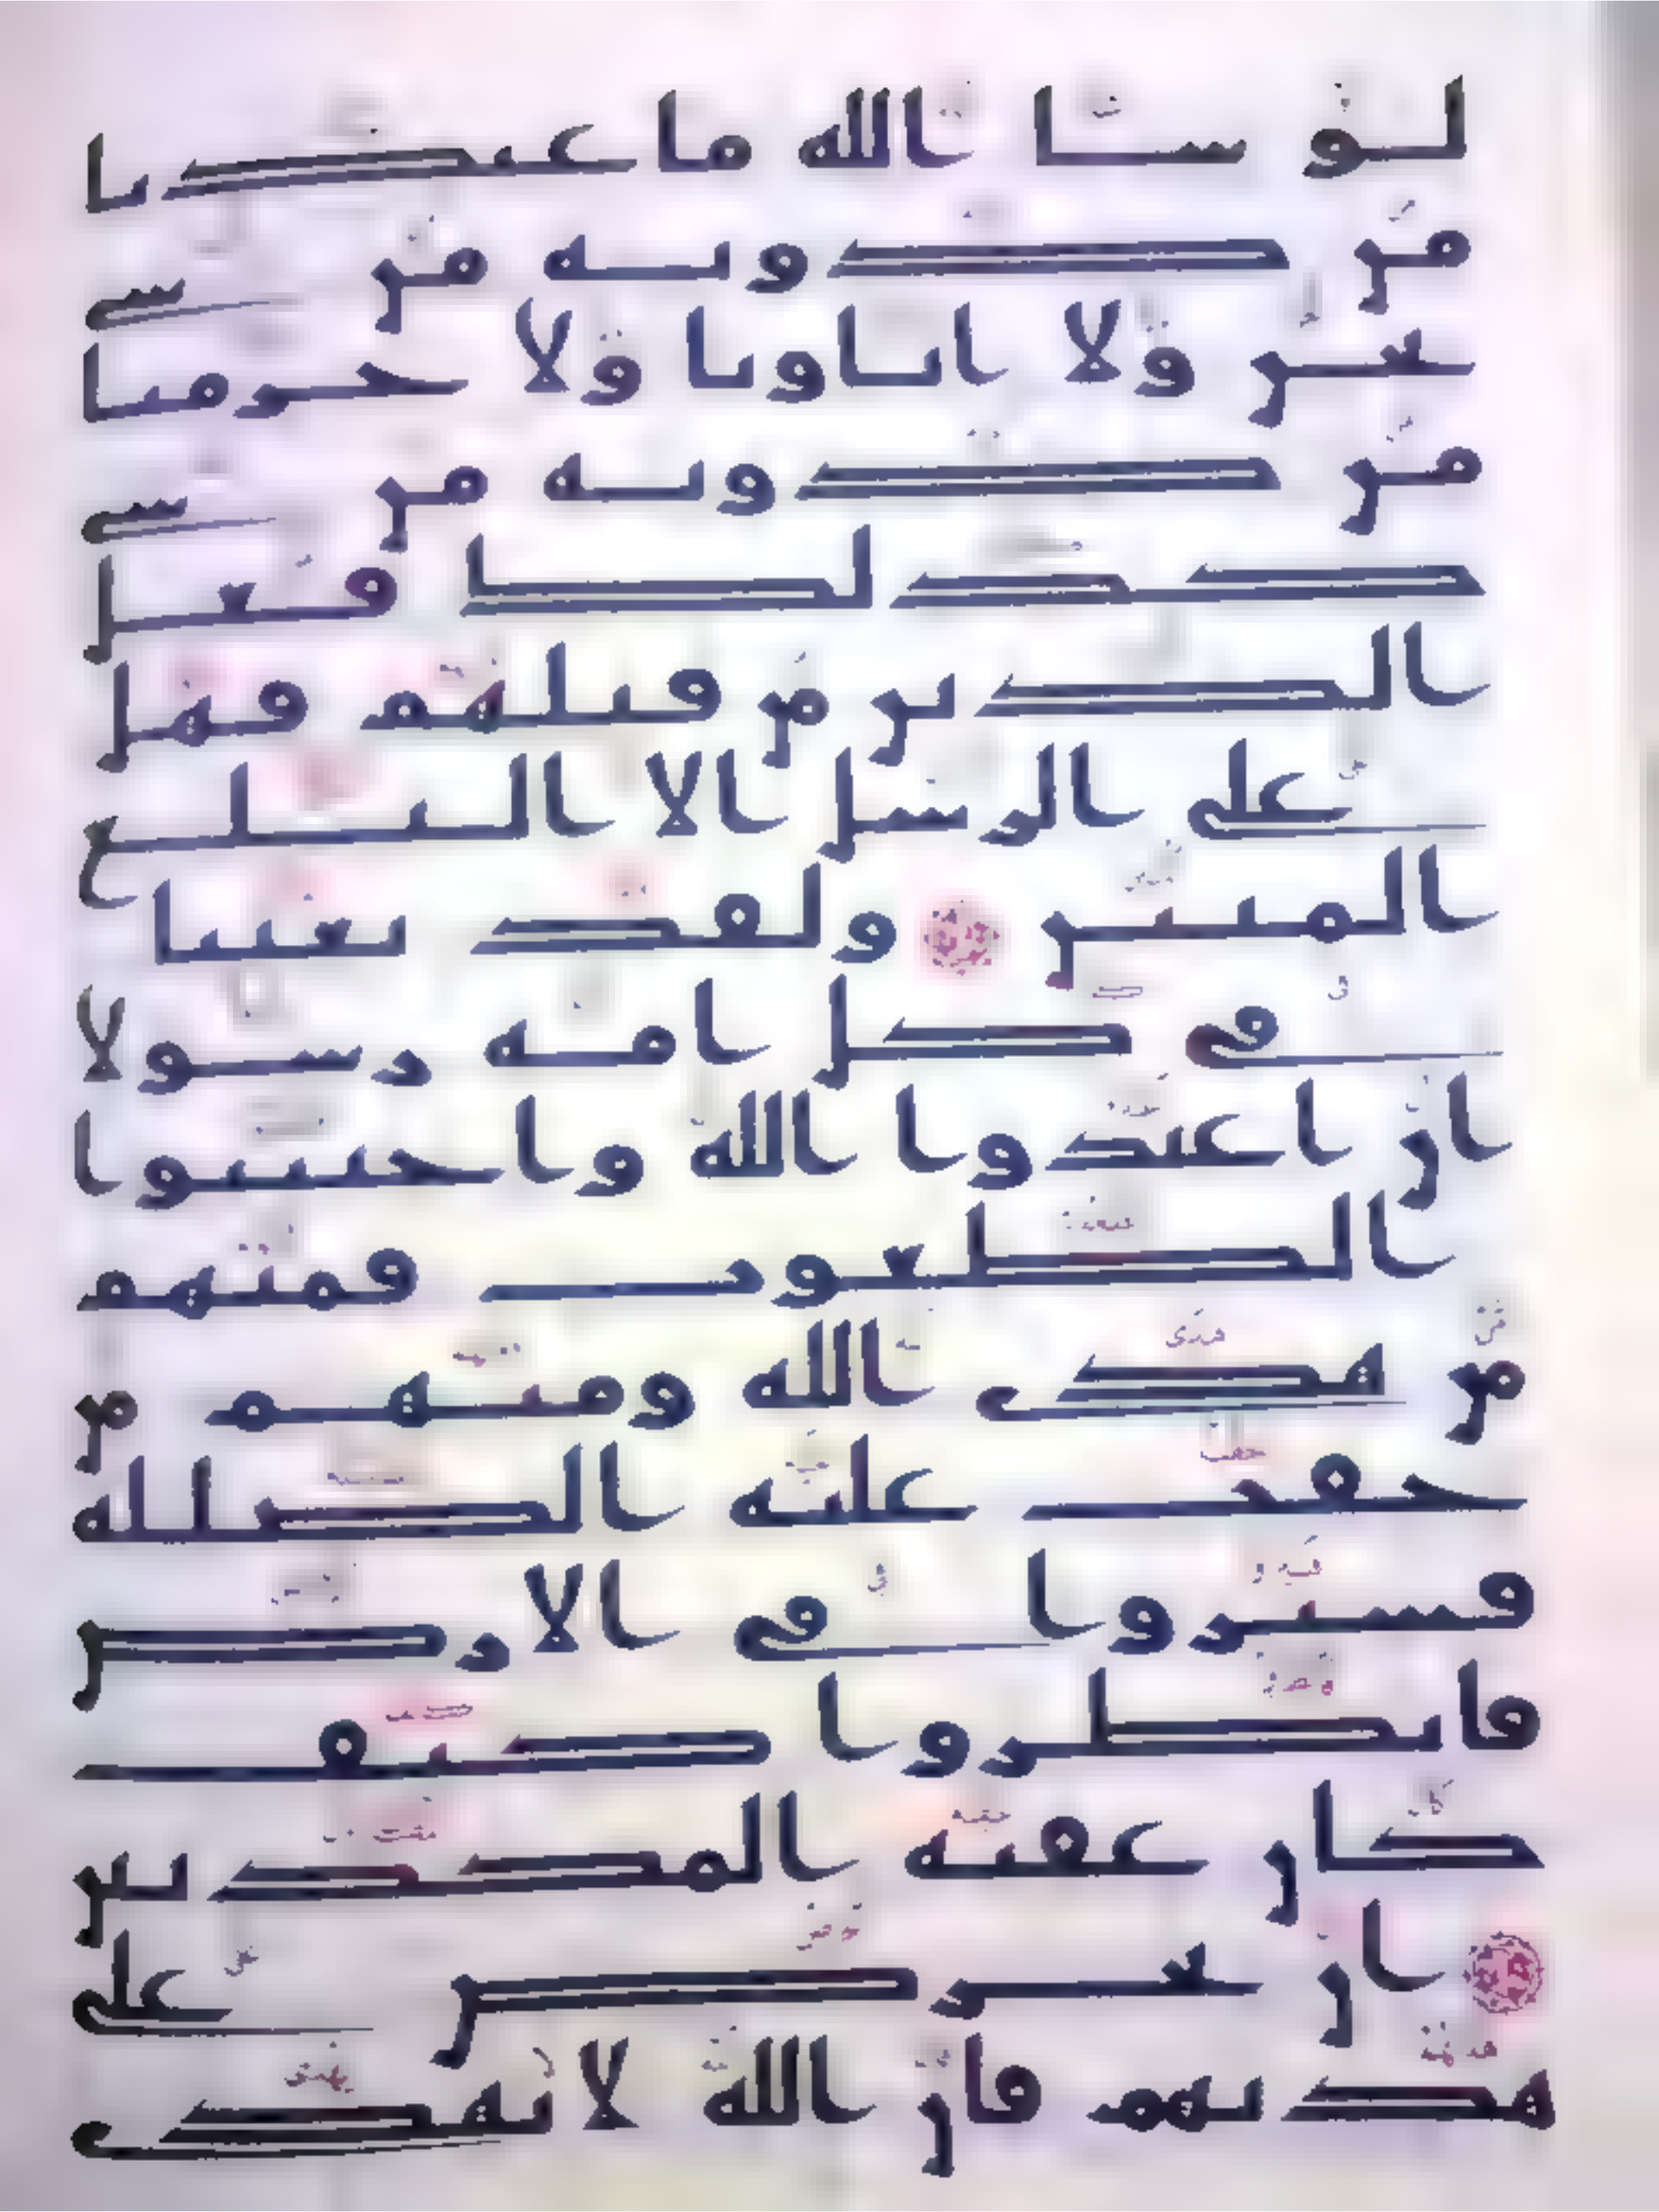 لو شا الله ما عبدنا
من دونه من شى
نحن ولا اباونا ولا حرمنا
من دونه من شى
كذلك فعل
الذين من قبلهم فهل
على الرسل الا البلغ
المبين ولقد بعثنا
فى كل امة رسولا
ان اعبدوا الله واجتنبوا
الطغوت فمنهم
من هدى الله ومنهم من
حقت عليه الضللة
فسيروا فى الارض
فانظروا كيف
كان عقبة المكذبين
ان تحرص على
هديهم فان الله لا يهدى